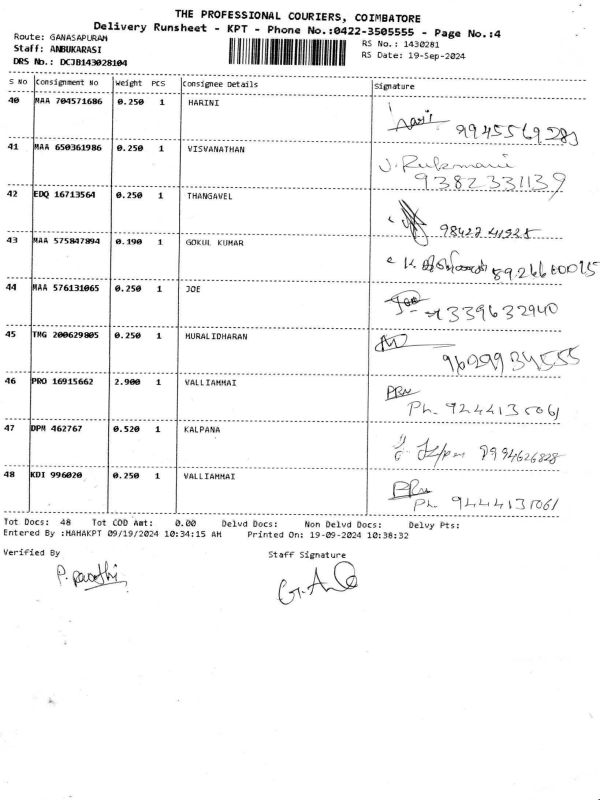 THE PROFESSIONAL COURIERS, COIMBATORE
Delivery Runsheet - KPT - Phone No.:0422-3505555 - Page No.:4
Route: GANASAPURAM
RS No.: 1430281
Staff: ANBUKARASI
RS Date: 19-Sep-2024
DRS No.: DCJB143028104
S No Consignment No. Weight PCS Consignee Details Signature
40 MAA 704571686 0.250 1 HARINI
41 MAA 650361986 0.250 1 VISVANATHAN J. Rukmani
9382331139
42 EDQ 16713564 0.250 1 THANGAVEL
98422 41525
43 MAA 575847894 0.190 1 GOKUL KUMAR
44 MAA 576131065 0.250 1 JOE
45 TMG 200629805 0.250 1 MURALIDHARAN
9629934555
46 PRO 16915662 2.900 1 VALLIAMMAI
Ph. 9244135061
47 DPM 462767 0.520 1 KALPANA
9994626828
48 KDI 996020 0.250 1 VALLIAMMAI
Ph. 9444135061
Tot Docs: 48 Tot COD Amt: 0.00 Delvd Docs: Non Delvd Docs: Delvy Pts:
Entered By :MAHAKPT 09/19/2024 10:34:15 AM Printed On: 19-09-2024 10:38:32
Verified By Staff Signature